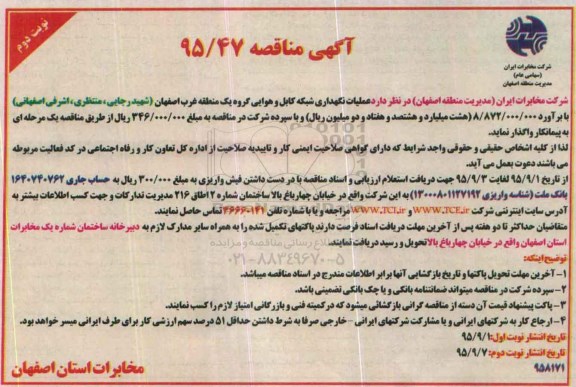 نوبت دوم
شرکت مخابرات ایران
(سهامی عام)
مدیریت منطقه اصفهان
آگهی مناقصه ۹۵/۴۷
شرکت مخابرات ایران (مدیریت منطقه اصفهان) در نظر دارد عملیات نگهداری شبکه کابل و هوایی گروه یک منطقه غرب اصفهان (شهید رجایی، منتظری، اشرفی اصفهانی)
با برآورد ۸/۸۷۲/۰۰۰/۰۰۰ (هشت میلیارد و هشتصد و هفتاد و دو میلیون ریال) و با سپرده شرکت در مناقصه به مبلغ ۳۴۶/۰۰۰/۰۰۰ ریال از طریق مناقصه یک مرحله ای
به پیمانکار واگذار نماید.
لذا از کلیه اشخاص حقیقی و حقوقی واجد شرایط که دارای گواهی صلاحیت ایمنی کار و تاییدیه صلاحیت از اداره کل تعاون کار و رفاه اجتماعی در کد فعالیت مربوطه
می باشند دعوت بعمل می آید.
از تاریخ ۹۵/۹/۱ لغایت ۹۵/۹/۳ جهت دریافت استعلام ارزیابی و اسناد مناقصه با در دست داشتن فیش واریزی به مبلغ ۳۰۰/۰۰۰ ریال به حساب جاری ۱۶۴۰۷۴۰۷۶۲
بانک ملت (شناسه واریزی ۱۳۰۰۰۸۰۱۱۲۷۱۹۲) به این شرکت واقع در خیابان چهارباغ بالا ساختمان شماره ۲ اطاق ۲۱۶ مدیریت تدارکات و جهت کسب اطلاعات بیشتر به
آدرس سایت اینترنتی شرکت WWW.TCE.ir و WWW.TCI.ir مراجعه و یا با شماره تلفن ۳۶۶۶۰۱۲۱ تماس حاصل نمایند.
متقاضیان حداکثر تا دو هفته پس از آخرین مهلت دریافت اسناد فرصت دارند پاکتهای تکمیل شده را به همراه سایر مدارک لازم به دبیرخانه ساختمان شماره یک مخابرات
استان اصفهان واقع در خیابان چهارباغ بالا تحویل و رسید دریافت نمایند.
توضیح اینکه:
۱- آخرین مهلت تحویل پاکتها و تاریخ بازگشایی آنها برابر اطلاعات مندرج در اسناد مناقصه میباشد.
۲- سپرده شرکت در مناقصه میتواند ضمانتنامه بانکی و یا چک بانکی تضمینی باشد.
۳- پاکت پیشنهاد قیمت آن دسته از مناقصه گرانی بازگشائی میشود که در کمیته فنی و بازرگانی امتیاز لازم را کسب نمایند.
۴- ارجاع کار به شرکتهای ایرانی و یا مشارکت شرکتهای ایرانی - خارجی صرفا به شرط داشتن حداقل ۵۱ درصد سهم ارزشی کار برای طرف ایرانی میسر خواهد بود.
تاریخ انتشار نوبت اول: ۹۵/۹/۱
تاریخ انتشار نوبت دوم: ۹۵/۹/۷
۹۵۸۱۷۱
مخابرات استان اصفهان
۰۲۱-۸۸۳۴۹۶۷۰-۵